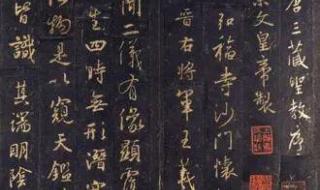 唐三藏聖教序
文皇帝製
弘福寺沙門懷
晉右將軍王羲
聞二儀有像顯覆
生四時無形潛寒
物是以窺天鑑
皆識其端明陰